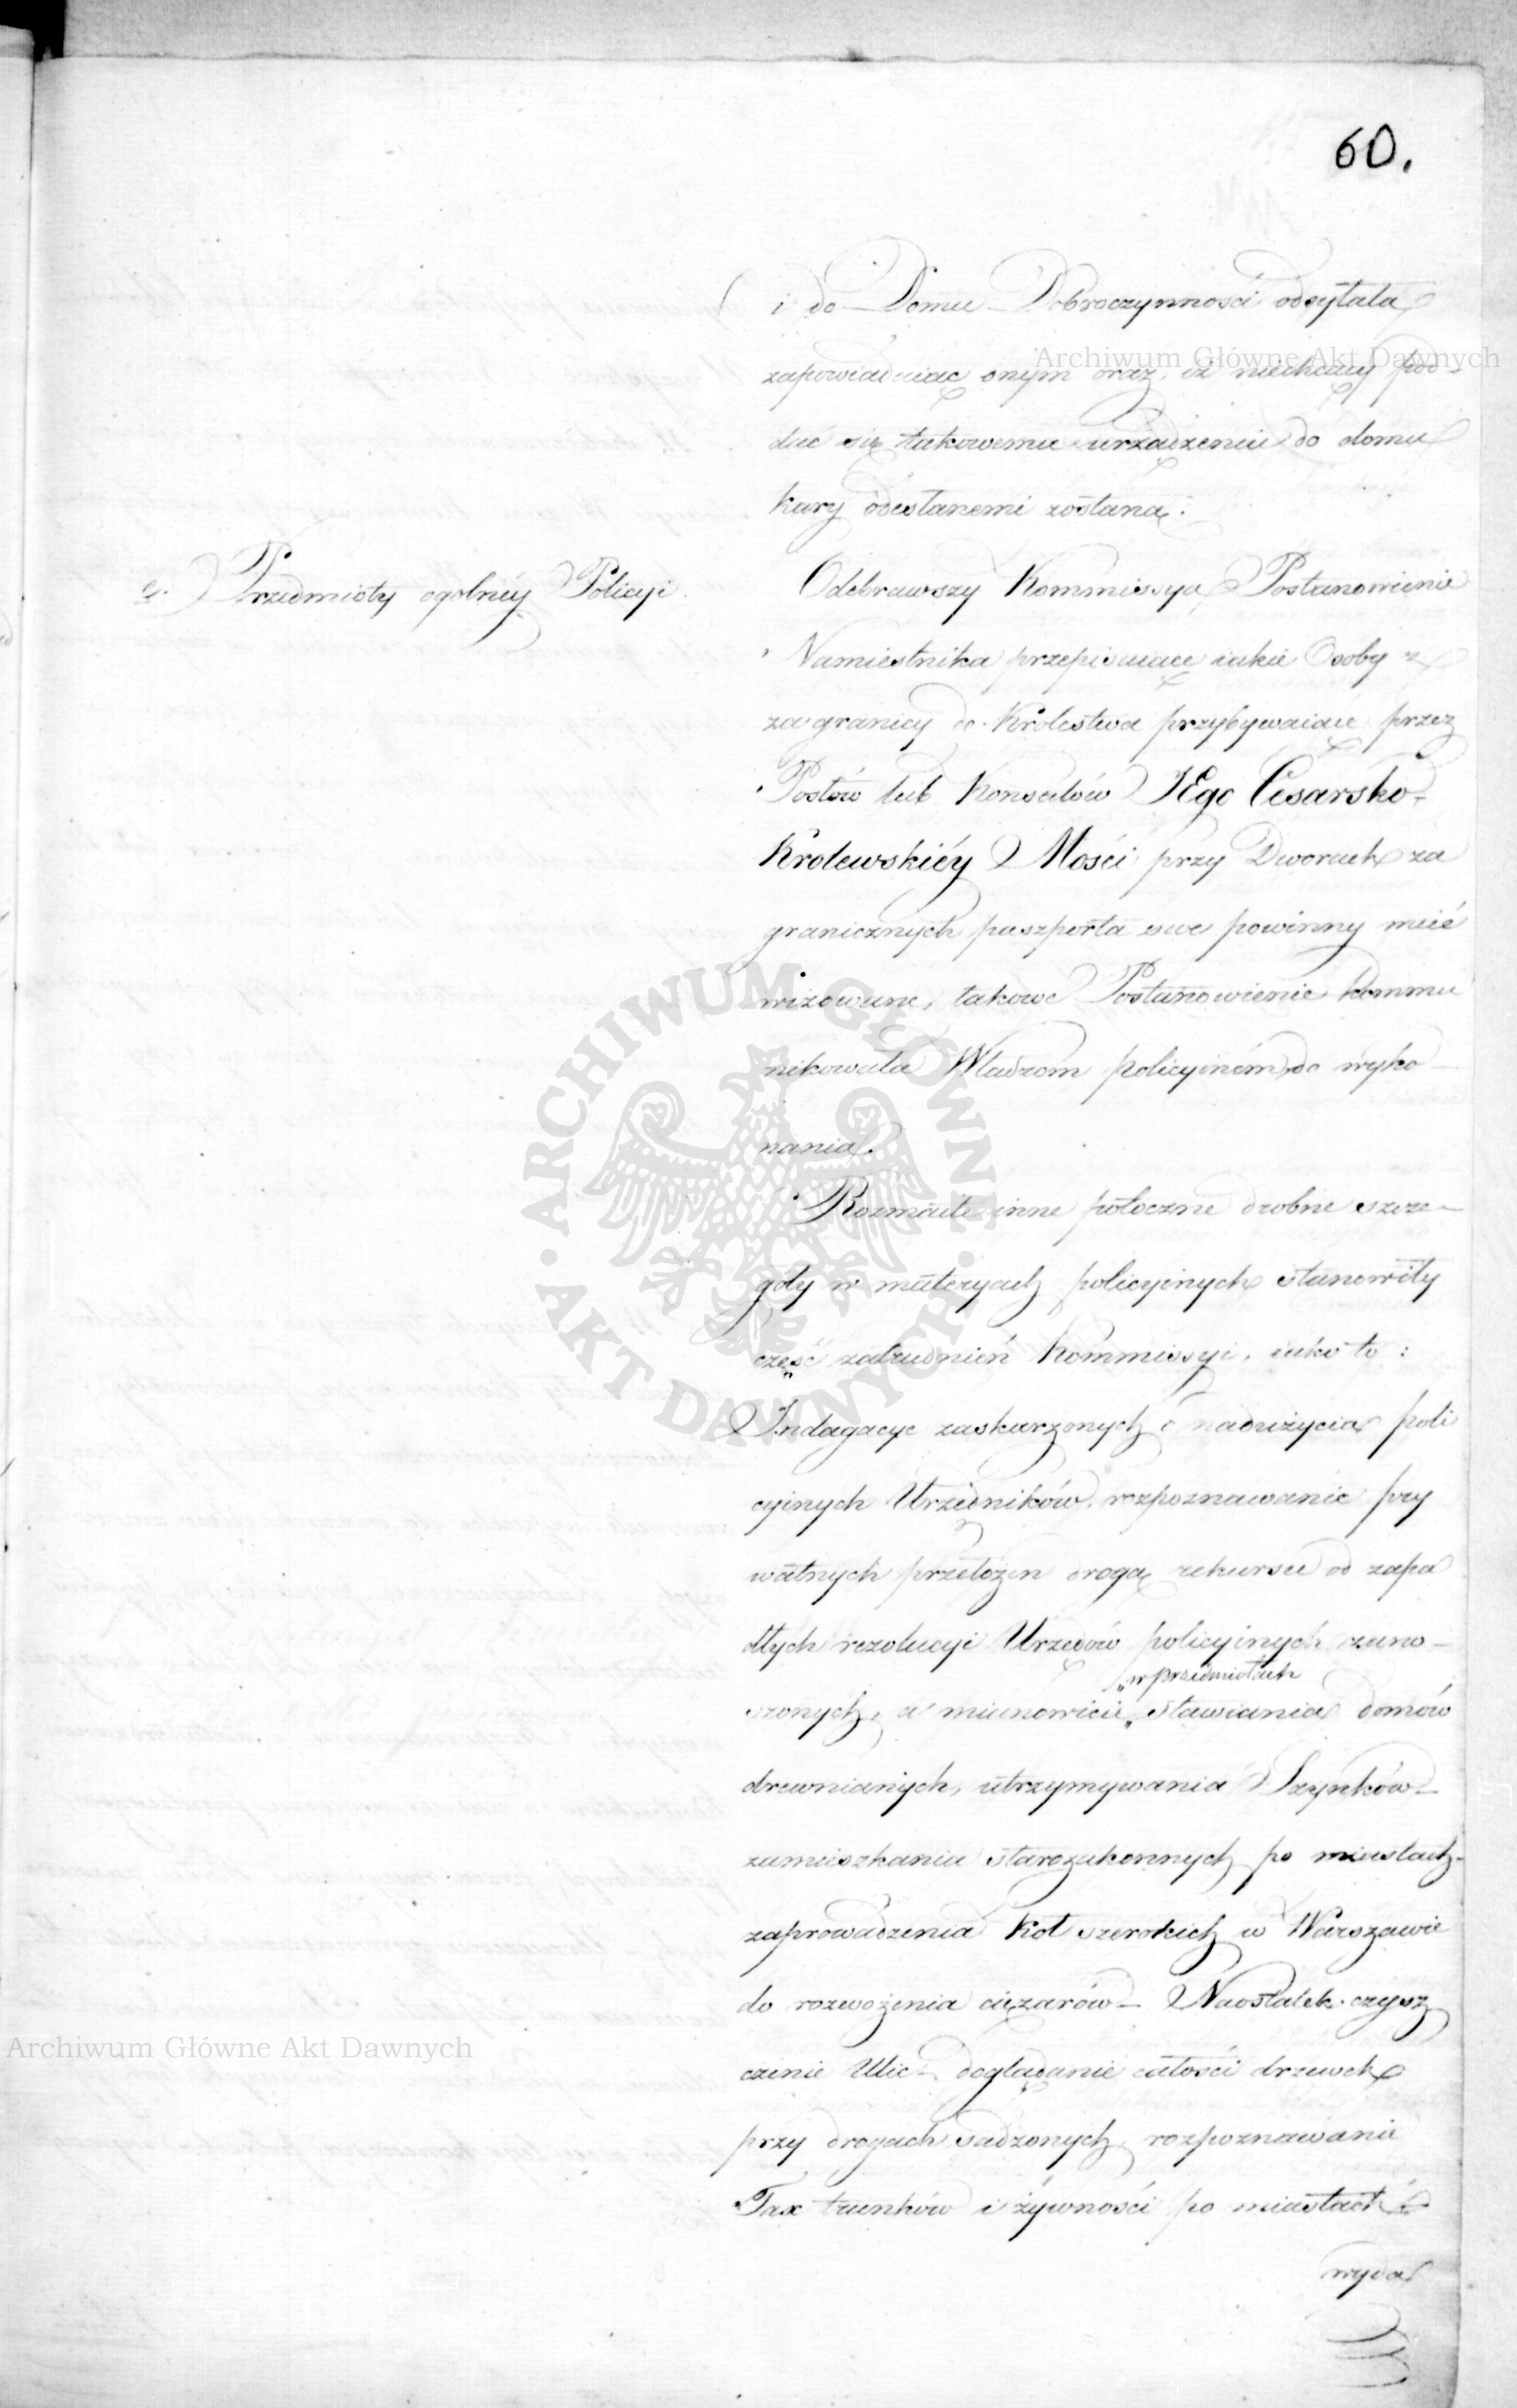 60.
i do Domu Dobroczynności odsyłała
Archiwum Główne Akt Dawnych
zapowiadaiąc onym oraz, iż niechcący pod-
dać się takowemu urządzeniu do domu
kary odesłanemi zostaną.
e.) Przedmioty ogolnéy Policyi.
Odebrawszy Kommissya Postanowienie
Namiestnika przepisuiące iakie Osoby z
za granicy do Krolestwa przybywaiące przez
Posłów lub Konsulów JEgo Cesarsko-
Krolewskiéy Mości przy Dworach za
granicznych paszporta swe powinny mieć
wizowane, takowe Postanowienie kommu
nikowała Władzom policyinem do wyko-
nania.
Rozmaite inne potoczne drobne szcze-
goły w materyach policyinych stanowiły
część zatrudnień Kommissyi, iako to:
Indagacye zaskarzonych o nadużycia poli
cyinych Urzędników, rozpoznawanie pry
watnych przełożen drogą rekursu od zapa
dłych rezolucyi Urzędów policyinych zano-
w przedmiotach
szonych, a mianowicie stawiania domów
drewnianych, utrzymywania Szynków-
zamieszkania starozakonnych po miastach-
zaprowadzenia Koł szerokich w Warszawie
do rozwożenia ciężarów- Naostatek czysz
czenie Ulic- doglądanie całości drzewek
przy drogach sadzonych, rozpoznawanie
Tax trunków i żywności po miastach
wyda
Archiwum Główne Akt Dawnych
ARCHIWUM GŁÓWNE · AKT DAWNYCH ·